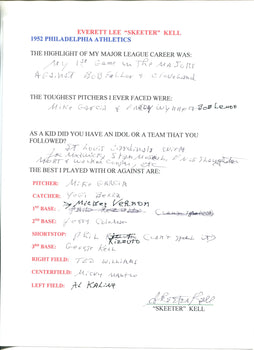 EVERETT LEE "SKEETER" KELL
1952 PHILADELPHIA ATHLETICS
THE HIGHLIGHT OF MY MAJOR LEAGUE CAREER WAS:
My 1st Game in The MAJORS
AGAINST Bob Feller & Cleveland
THE TOUGHEST PITCHERS I EVER FACED WERE:
MIKE GARCIA & EARLY WYNN Bob Lemon
AS A KID DID YOU HAVE AN IDOL OR A TEAM THAT YOU
FOLLOWED?
ST Louis Cardinals with
Stan Musial, Enos Slaughter
Marty Marion Walker Cooper, etc
THE BEST I PLAYED WITH OR AGAINST ARE:
PITCHER: MIKE GARCIA
CATCHER: YOGI BERRA
1ST BASE: Mickey VERNON
2ND BASE:
SHORTSTOP: PHIL Rizzuto
3RD BASE: George Kell
RIGHT FIELD: TED WILLIAMS
CENTERFIELD: Micky Mantle
LEFT FIELD: AL KALINE
Skeeter Kell
"SKEETER" KELL